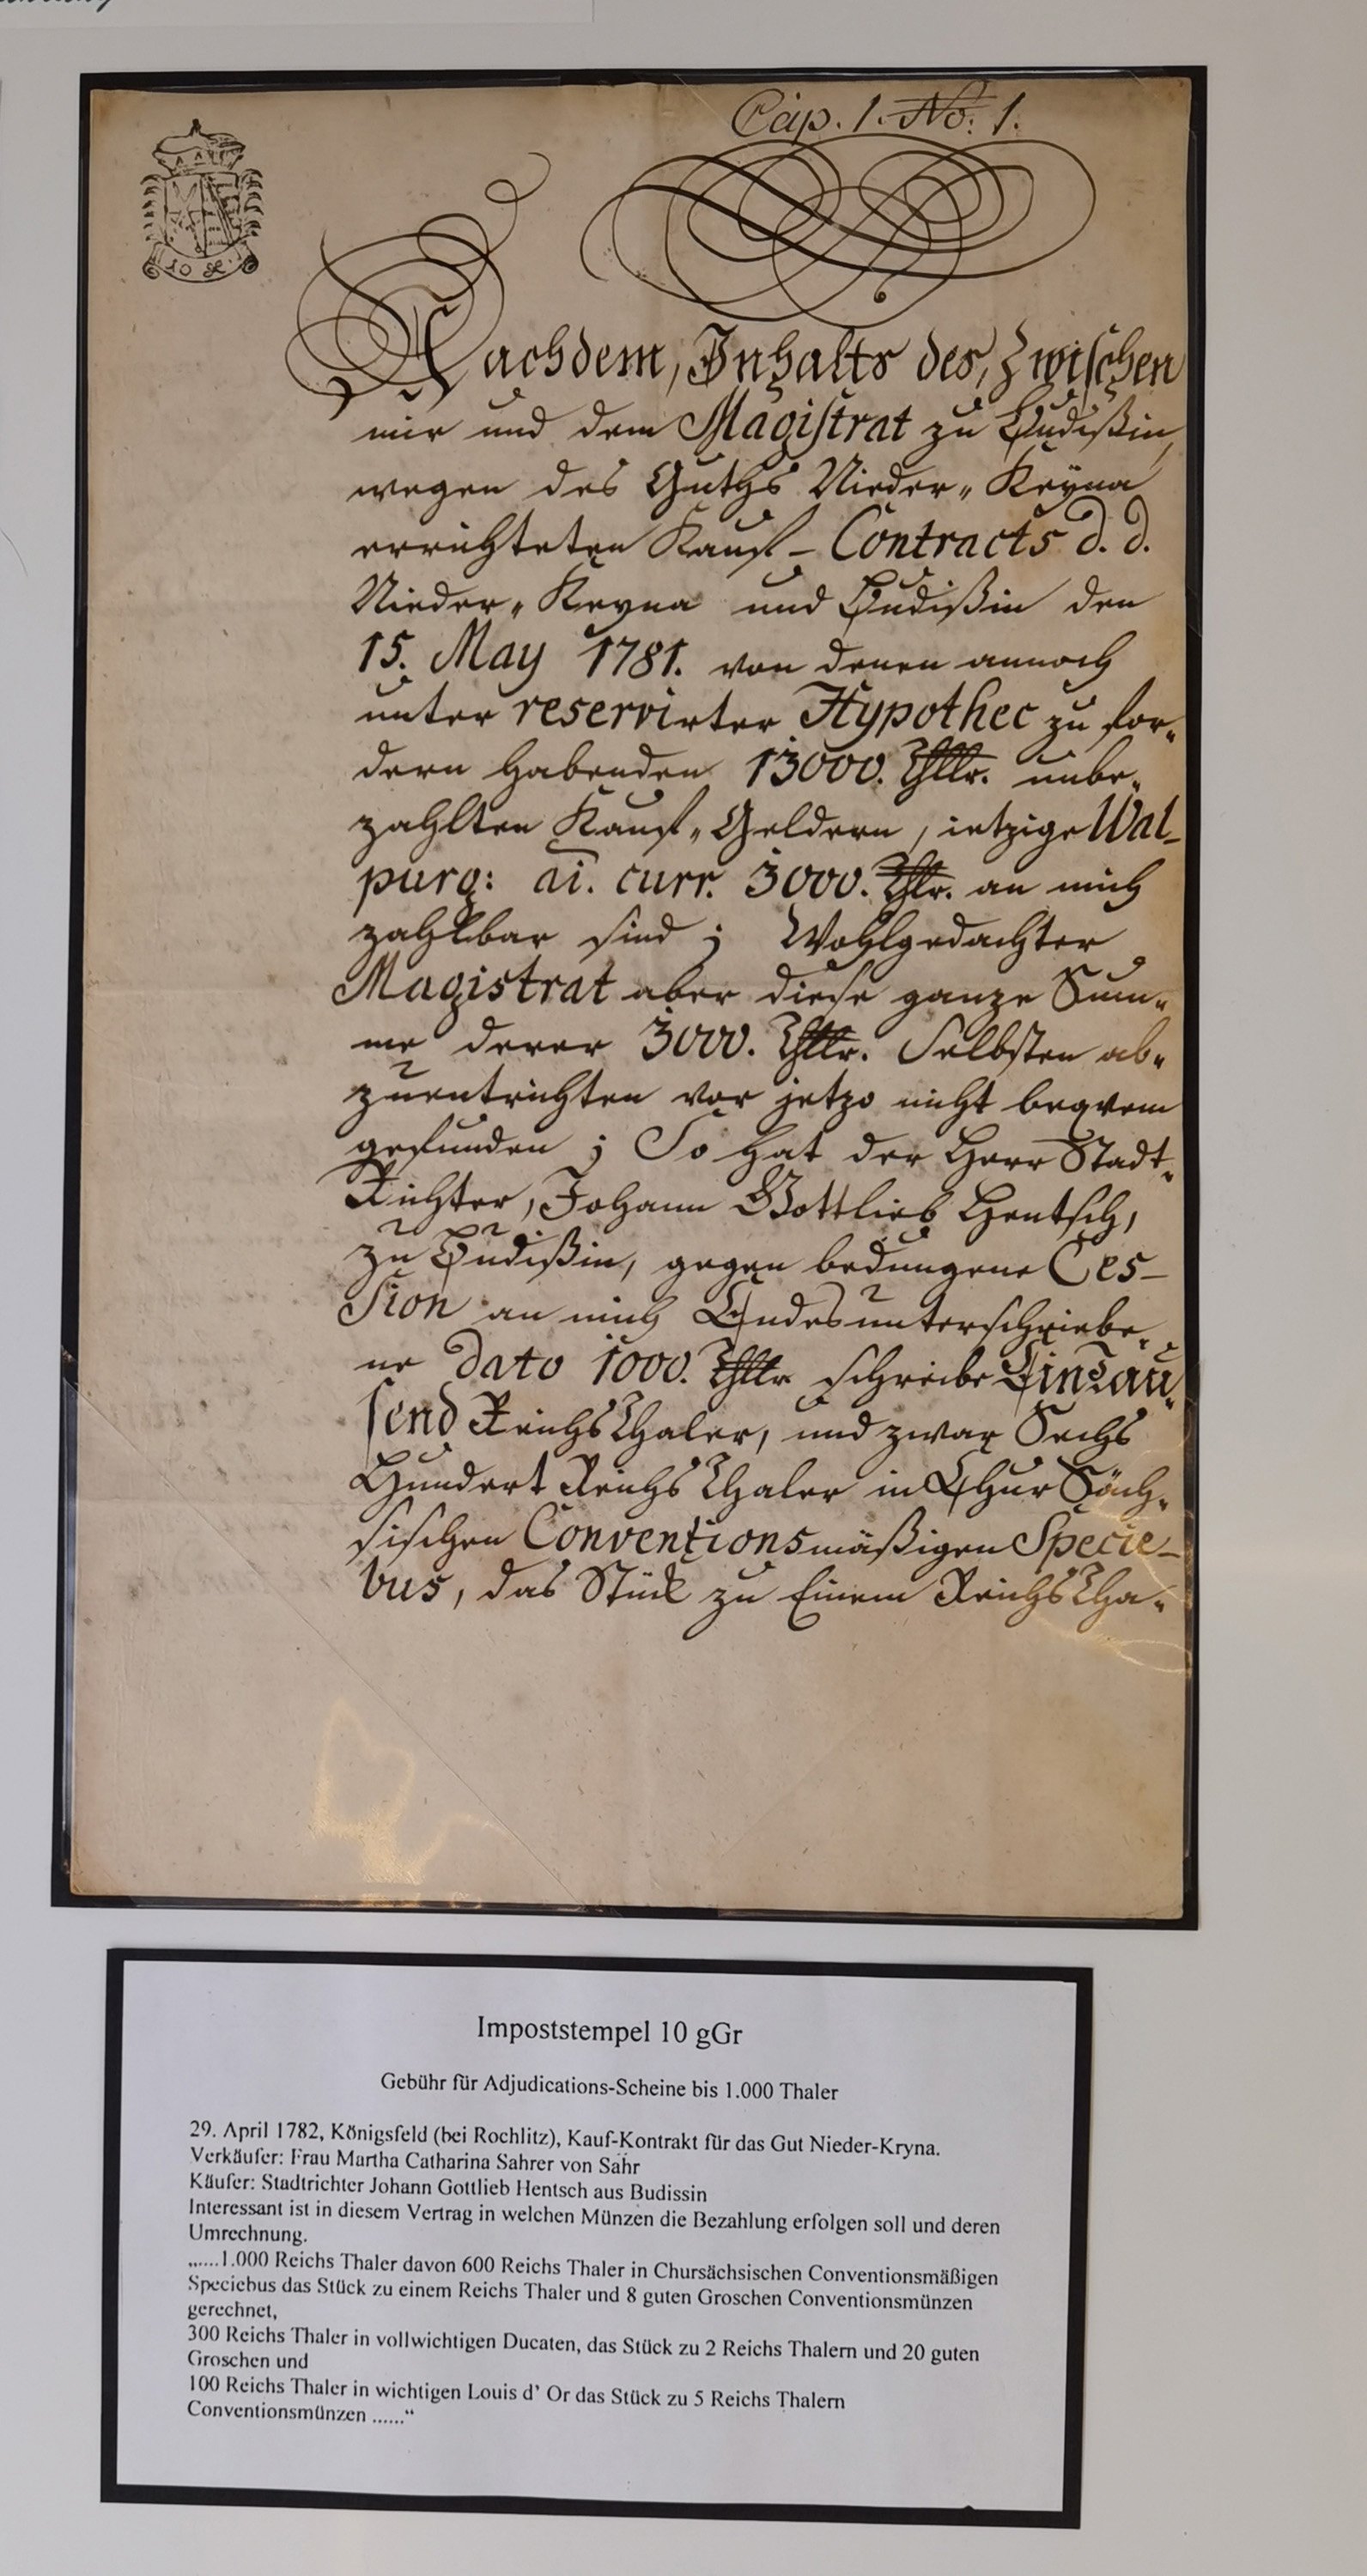 Cap. 1. No. 1.
10 gl.
Nachdem, Inhalts des, zwischen
mir und dem Magistrat zu Budißin,
wegen des Guths Nieder„ Keÿna
errichteten Kauf- Contracts d. d.
Nieder„ Keyna und Budißin den
15. May 1781. von denen annoch
unter reservirter Hypothec zu for„
dern habenden 13000. Thllr. unbe„
zahlten Kauf„ Geldern, ietzige Wal-
purg: ai. curr. 3000. Thlr. an mich
zahlbar sind; Wohlgedachter
Magistrat aber diese ganze Sum„
me derer 3000. Thllr. Selbsten ab„
zuentrichten vor jetzo nicht beqvem
gefunden; So hat der Herr Stadt„
Richter, Johann Gottlieb Hentsch,
zu Budißin, gegen bedungene Ces-
sion an mich Endesunterschriebe„
ne dato 1000. Thllr schreibe Eintau„
send ReichsThaler, und zwar Sechs
Hundert ReichsThaler in ChurSäch„
sischen Conventionsmäßigen Specie-
bus, das Stück zu Einem ReichsTha„
Impoststempel 10 gGr
Gebühr für Adjudications-Scheine bis 1.000 Thaler
29. April 1782, Königsfeld (bei Rochlitz), Kauf-Kontrakt für das Gut Nieder-Kryna.
Verkäufer: Frau Martha Catharina Sahrer von Sahr
Käufer: Stadtrichter Johann Gottlieb Hentsch aus Budissin
Interessant ist in diesem Vertrag in welchen Münzen die Bezahlung erfolgen soll und deren
Umrechnung.
„......1.000 Reichs Thaler davon 600 Reichs Thaler in Chursächsischen Conventionsmäßigen
Speciebus das Stück zu einem Reichs Thaler und 8 guten Groschen Conventionsmünzen
gerechnet,
300 Reichs Thaler in vollwichtigen Ducaten, das Stück zu 2 Reichs Thalern und 20 guten
Groschen und
100 Reichs Thaler in wichtigen Louis d' Or das Stück zu 5 Reichs Thalern
Conventionsmünzen ......“